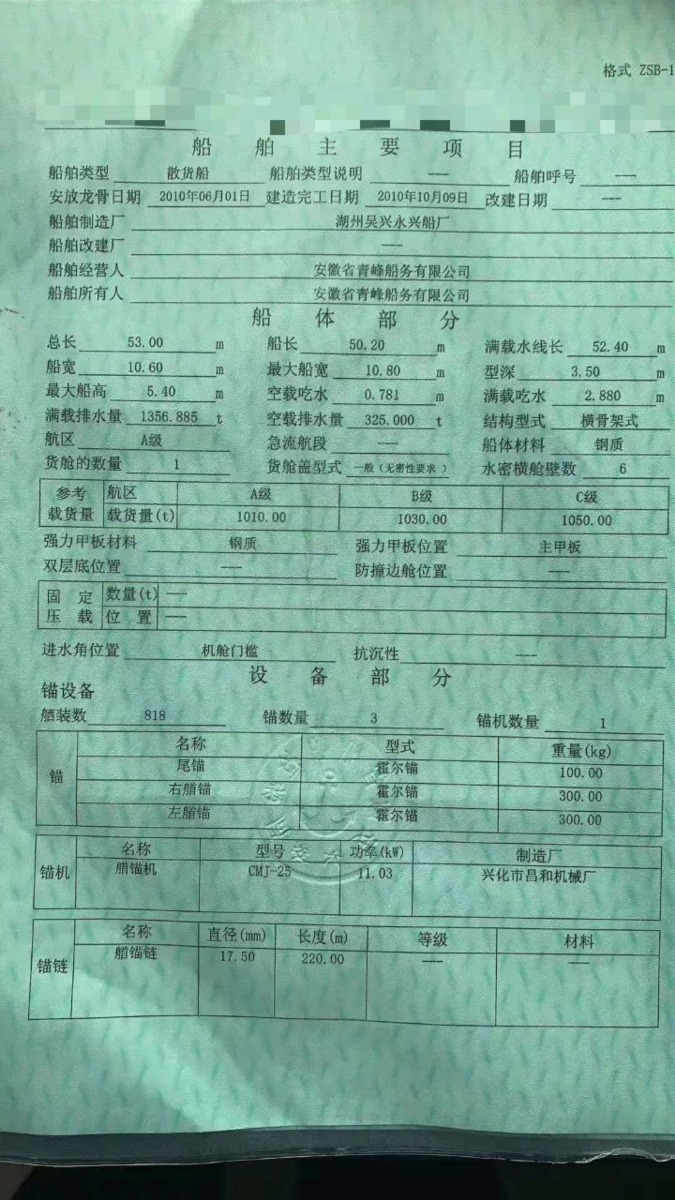 格式 ZSB-1
船舶主要项目
船舶类型 散货船 船舶类型说明 --- 船舶呼号 ---
安放龙骨日期 2010年06月01日 建造完工日期 2010年10月09日 改建日期 ---
船舶制造厂 湖州吴兴永兴船厂
船舶改建厂 ---
船舶经营人 安徽省青峰船务有限公司
船舶所有人 安徽省青峰船务有限公司
船体部分
总长 53.00 m 船长 50.20 m 满载水线长 52.40 m
船宽 10.60 m 最大船宽 10.80 m 型深 3.50 m
最大船高 5.40 m 空载吃水 0.781 m 满载吃水 2.880 m
满载排水量 1356.885 t 空载排水量 325.000 t 结构型式 横骨架式
航区 A级 急流航段 --- 船体材料 钢质
货舱的数量 1 货舱盖型式 一般（无密性要求） 水密横舱壁数 6
参考 航区 A级 B级 C级
载货量 载货量(t) 1010.00 1030.00 1050.00
强力甲板材料 钢质 强力甲板位置 主甲板
双层底位置 --- 防撞边舱位置 ---
固定 数量(t) ---
压载 位置 ---
进水角位置 机舱门槛 抗沉性 ---
设备部分
锚设备
舾装数 818 锚数量 3 锚机数量 1
名称 型式 重量(kg)
锚 尾锚 霍尔锚 100.00
右艏锚 霍尔锚 300.00
左艏锚 霍尔锚 300.00
名称 型号 功率(kW) 制造厂
锚机 艏锚机 CMJ-25 11.03 兴化市昌和机械厂
名称 直径(mm) 长度(m) 等级 材料
锚链 艏锚链 17.50 220.00 --- ---